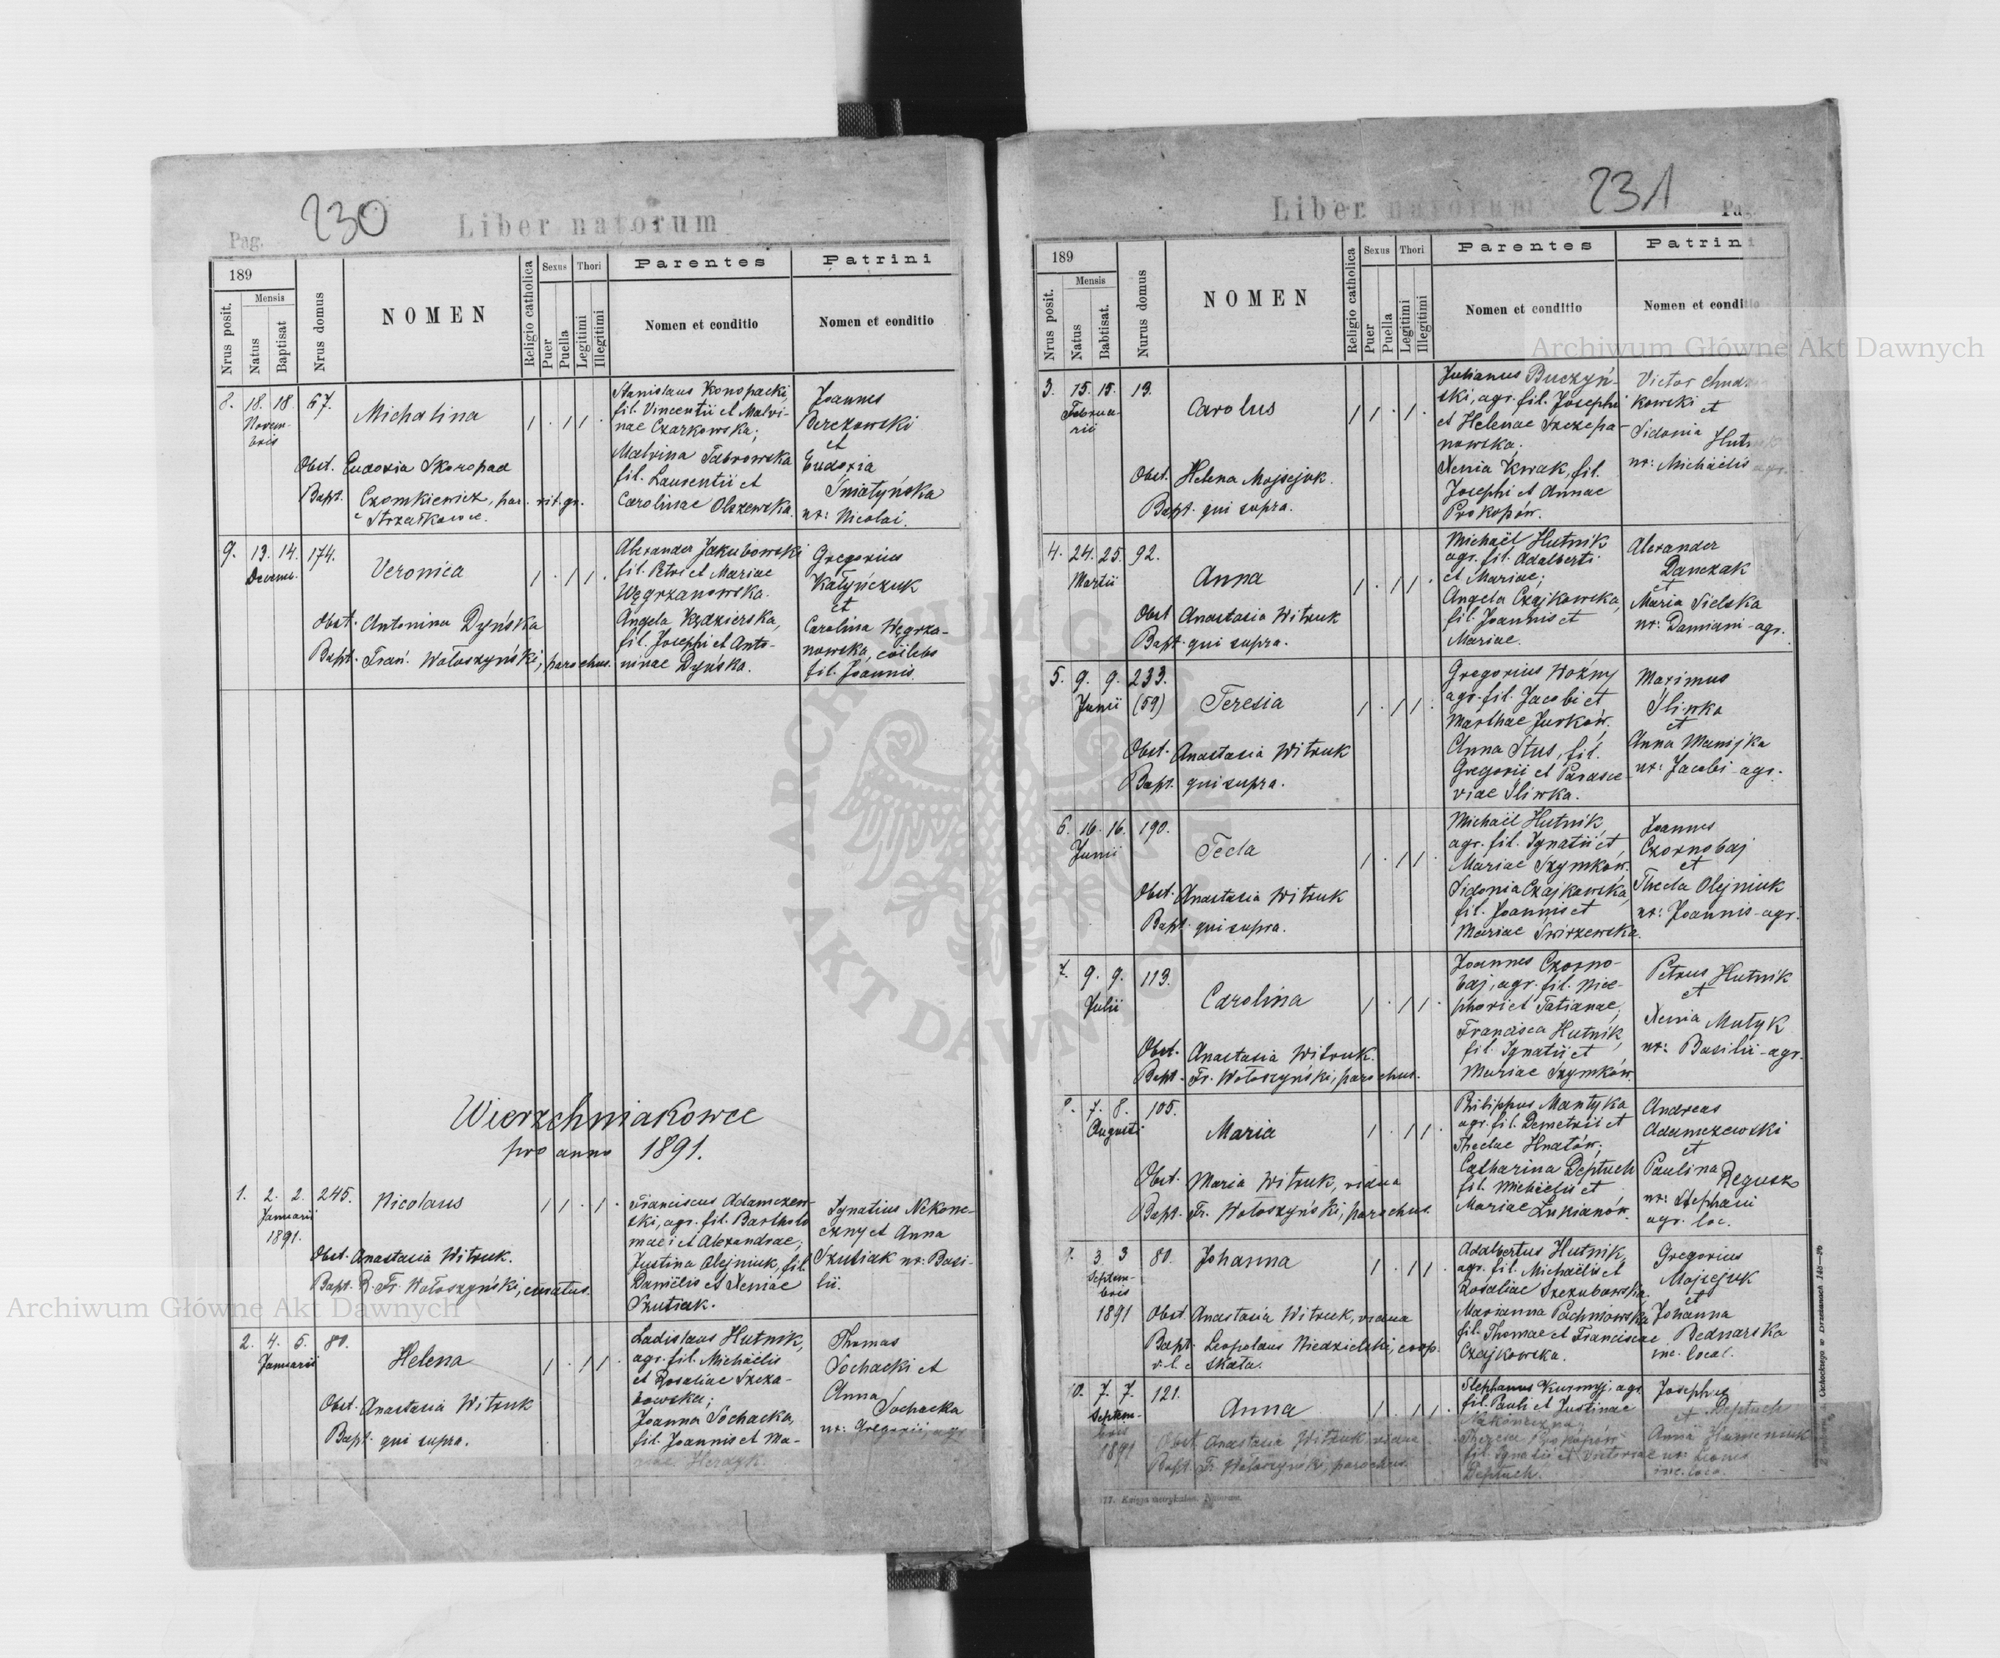 230
Pag.
Liber natorum
189
Mensis
Nrus posit.
Natus
Baptisat
Nrus domus
NOMEN
Religio catholica
Sexus
Puer
Puella
Thori
Legitimi
Illegitimi
Parentes
Nomen et conditio
Patrini
Nomen et conditio
8. 18. 18. 67.
Novem-
bris
Michalina
1 . 1 1 .
Obst. Eudoxia Skoropad
Bapt. Czomkiewicz, par. rit. gr.
e Strzałkowce.
Stanislaus Konopacki,
fil. Vincentii et Malvi-
nae Czarkowska;
Malvina Dąbrowska
fil. Laurentii et
Carolinae Olszewska.
Joannes
Berezowski
et
Eudoxia
Śniatyńska
ux: Nicolai.
9. 13. 14. 174.
Decemb.
Veronica
1 . 1 1 .
Obst. Antonina Dyńska
Bapt. Fran. Wołoszyński, parochus.
Alexander Jakubowski
fil. Petri et Mariae
Węgrzanowska.
Angela Kędzierska,
fil. Josephi et Anto-
ninae Dyńska.
Gregorius
Katyńczuk
et
Carolina Węgrza-
nowska, coelebs
fil. Joannis.
Wierzchniakowce
pro anno 1891.
1. 2. 2. 245.
Januarii
1891.
Nicolaus
1 1 . 1 .
Obst. Anastasia Witruk.
Bapt. R. Fr. Wołoszyński, curatus.
Franciscus Adamczew-
ski, agr. fil. Bartholo
maei et Alexandrae;
Justina Olejniuk, fil.
Danielis et Xeniae
Szutiak.
Ignatius Nekone-
czny et Anna
Szutiak ux: Basi-
lii.
2. 4. 5. 80.
Januarii
Helena
1 . 1 1 .
Obst. Anastasia Witruk
Bapt. qui supra.
Ladislaus Hutnik,
agr. fil. Michaëlis
et Rosaliae Szcza-
bowska;
Joanna Sochacka,
fil. Joannis et Ma-
riae Herdyk.
Thomas
Sochacki et
Anna
Sochacka
ux: Gregorii, agr.
231
Liber natorum
Pag.
189
Mensis
Nrus posit.
Natus
Babtisat.
Nurus domus
NOMEN
Religio catholica
Sexus
Puer
Puella
Thori
Legitimi
Illegitimi
Parentes
Nomen et conditio
Patrini
Nomen et conditio
3. 15. 15. 13.
Februa-
rii
Carolus
1 1 . 1 .
Obst. Helena Mojsejuk.
Bapt. qui supra.
Julianus Buczyń-
ski, agr. fil. Josephi
et Helenae Szczepa-
nowska;
Xenia Kwak, fil.
Josephi et Annae
Prokopów.
Victor
kowski et
Sidonia Hutnik
ux: Michaëlis agr.
4. 24. 25. 92.
Martii
Anna
1 . 1 1 .
Obst. Anastasia Witruk
Bapt. qui supra.
Michaël Hutnik
agr. fil. Adalberti
et Mariae;
Angela Czajkowska,
fil. Joannis et
Mariae.
Alexander
Danczak
et
Maria Sielska
ux: Damiani - agr.
5. 9. 9. 233.
Junii (59)
Teresia
1 . 1 1 .
Obst. Anastasia Witruk
Bapt. qui supra.
Gregorius Woźny
agr. fil. Jacobi et
Marthae Jurków.
Anna Stus, fil.
Gregorii et Parasce-
viae Śliwka.
Maximus
Śliwka
et
Anna Manijka
ux: Jacobi - agr.
6. 16. 16. 190.
Junii
Tecla
1 . 1 1 .
Obst. Anastasia Witruk
Bapt. qui supra.
Michaël Hutnik,
agr. fil. Ignatii et
Mariae Szymków.
Sidonia Czajkowska,
fil. Joannis et
Mariae Świrzewska.
Joannes
Czornobaj
et
Thecla Olejniuk
ux: Joannis - agr.
7. 9. 9. 113.
Julii
Carolina
1 . 1 1 .
Obst. Anastasia Witruk.
Bapt. Fr. Wołoszyński, parochus.
Joannes Czorno-
baj, agr. fil. Nice-
phori et Tatianae,
Francisca Hutnik,
fil. Ignatii et
Mariae Szymków.
Petrus Hutnik
et
Xenia Mutyk
ux: Basilii - agr.
8. 7. 8. 105.
Augusti
Maria
1 . 1 1 .
Obst. Maria Witruk, vidua
Bapt. Fr. Wołoszyński, parochus.
Philippus Mantyka
agr. fil. Demetrii et
Theclae Hnatów;
Catharina Deptuch
fil. Michaëlis et
Mariae Lukianów.
Andreas
Adamczewski
et
Paulina
Regusz
ux: Stephani
agr. loc.
9. 3 3 80.
Septem-
bris
1891
Johanna
1 . 1 1 .
Obst. Anastasia Witruk, vidua
Bapt. Leopoldus Niedzielski, coop.
v. l. e skata.
Adalbertus Hutnik,
agr. fil. Michaëlis et
Rosaliae Szczubowska.
Marianna Pachniowska
fil. Thomae et Franciscae
Czajkowska.
Gregorius
Mojsejuk
et
Johanna
Bednarska
inc. local.
10. 7. 7. 121.
Septem-
bris
1891
Anna
1 . 1 1 .
Obst. Anastasia Witruk vidua
Bapt. Fr. Wołoszyński, parochus.
Stephanus Kusznyj, agr.
fil. Pauli et Justinae
Nakoneczna;
Theresa Prokopów
fil. Ignatii et Victoriae
Deptuch.
Josephus
et Deptuch
Anna Humeniuk
ux: Leonis
inc. loco.
Archiwum Główne Akt Dawnych
Archiwum Główne Akt Dawnych
ARCHIWUM GŁÓWNE AKT DAWNYCH